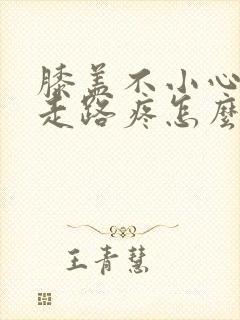 膝盖不小心
走路疼怎麼
王青慧